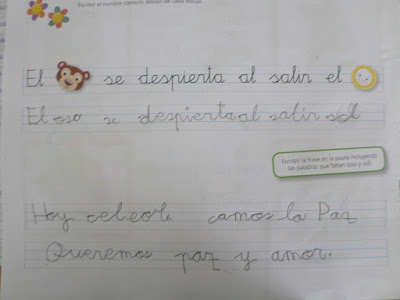 Escribir el nombre correcto debajo de cada dibujo.
El se despierta al salir el
El oso se despierta al salir sol
Escribir la frase en la pauta incluyendo
las palabras que faltan (oso y sol).
Hoy celeb camos la Paz
Queremos paz y amor.